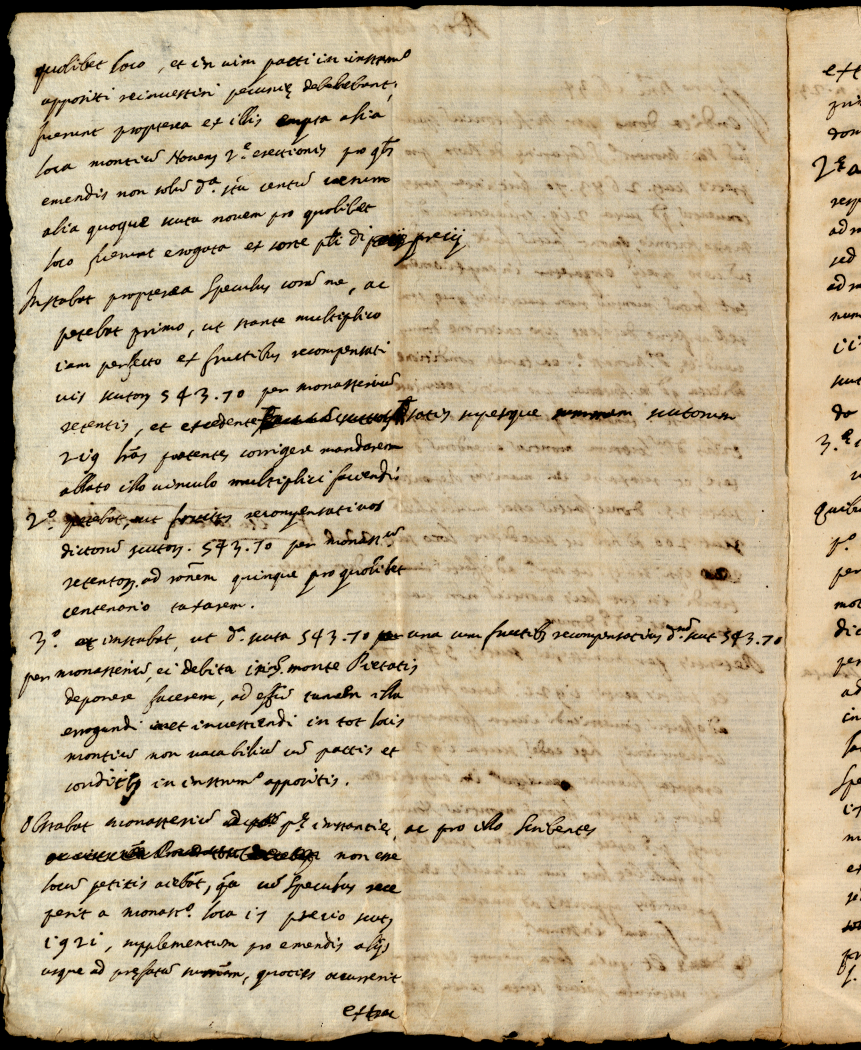 quolibet loco, et in vim pacti in instrum.º
appositi reinvestiri pecunię debebant,
fuerunt propterea ex illis empta alia
loca montiũ Noveny 2.º erectionis pro q̃bs
emendis non solũ d.ª scuta centũ verum
alia quoque scuta novem pro quolibet
loco fuerunt erogata ex sorte precij
Instabat propterea Speculus corã me, ac
petebat primo, ut stante multiplico
iam perfecto ex fructibus recompensati
vis scutor 543.70 per monasteriũ
retentis, et excedente satis superque scutorum
219 lrãs patentes corrigere mandarem
ablato illo vinculo multiplici faciendi
2.º petebat, ut fructus recompensativos
dictorũ scutor. 543.70 per monast.ũ
retentor. ad rõnem quinque pro quolibet
centenario taxarem.
3.º et instabat, ut d.ª scuta 543.70 una cum fructibs recompensativis d.ª scut 543.70
per monasteriũ, ei debita in monte Pietatis
deponere facerem, ad effũ illa
errogandi et investiendi in tot locis
montiũ non vacabiliũ cũ pactis et
condit.bs in instrum.º appositis.
Obstabat monasteriũ p.ę instantię, ac pro illo scribentes
non esse
locũ petitis aiebãt, q̃a cũ Speculus rece
perit a monast.º loca 17 precio scut
1921, supplementum pro emendis alijs
usque ad prefatũ sumãm, quoties occurrerit
extrac